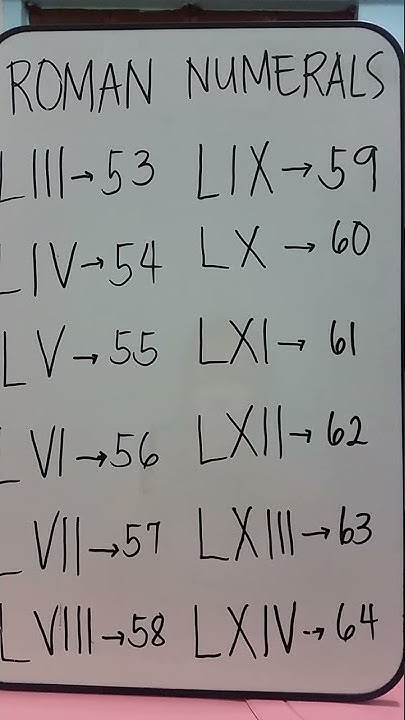 ROMAN NUMERALS
LIII→53 LIX→59
LIV→54 LX→60
LV→55 LXI→61
LVI→56 LXII→62
LVII→57 LXIII→63
LVIII→58 LXIV→64